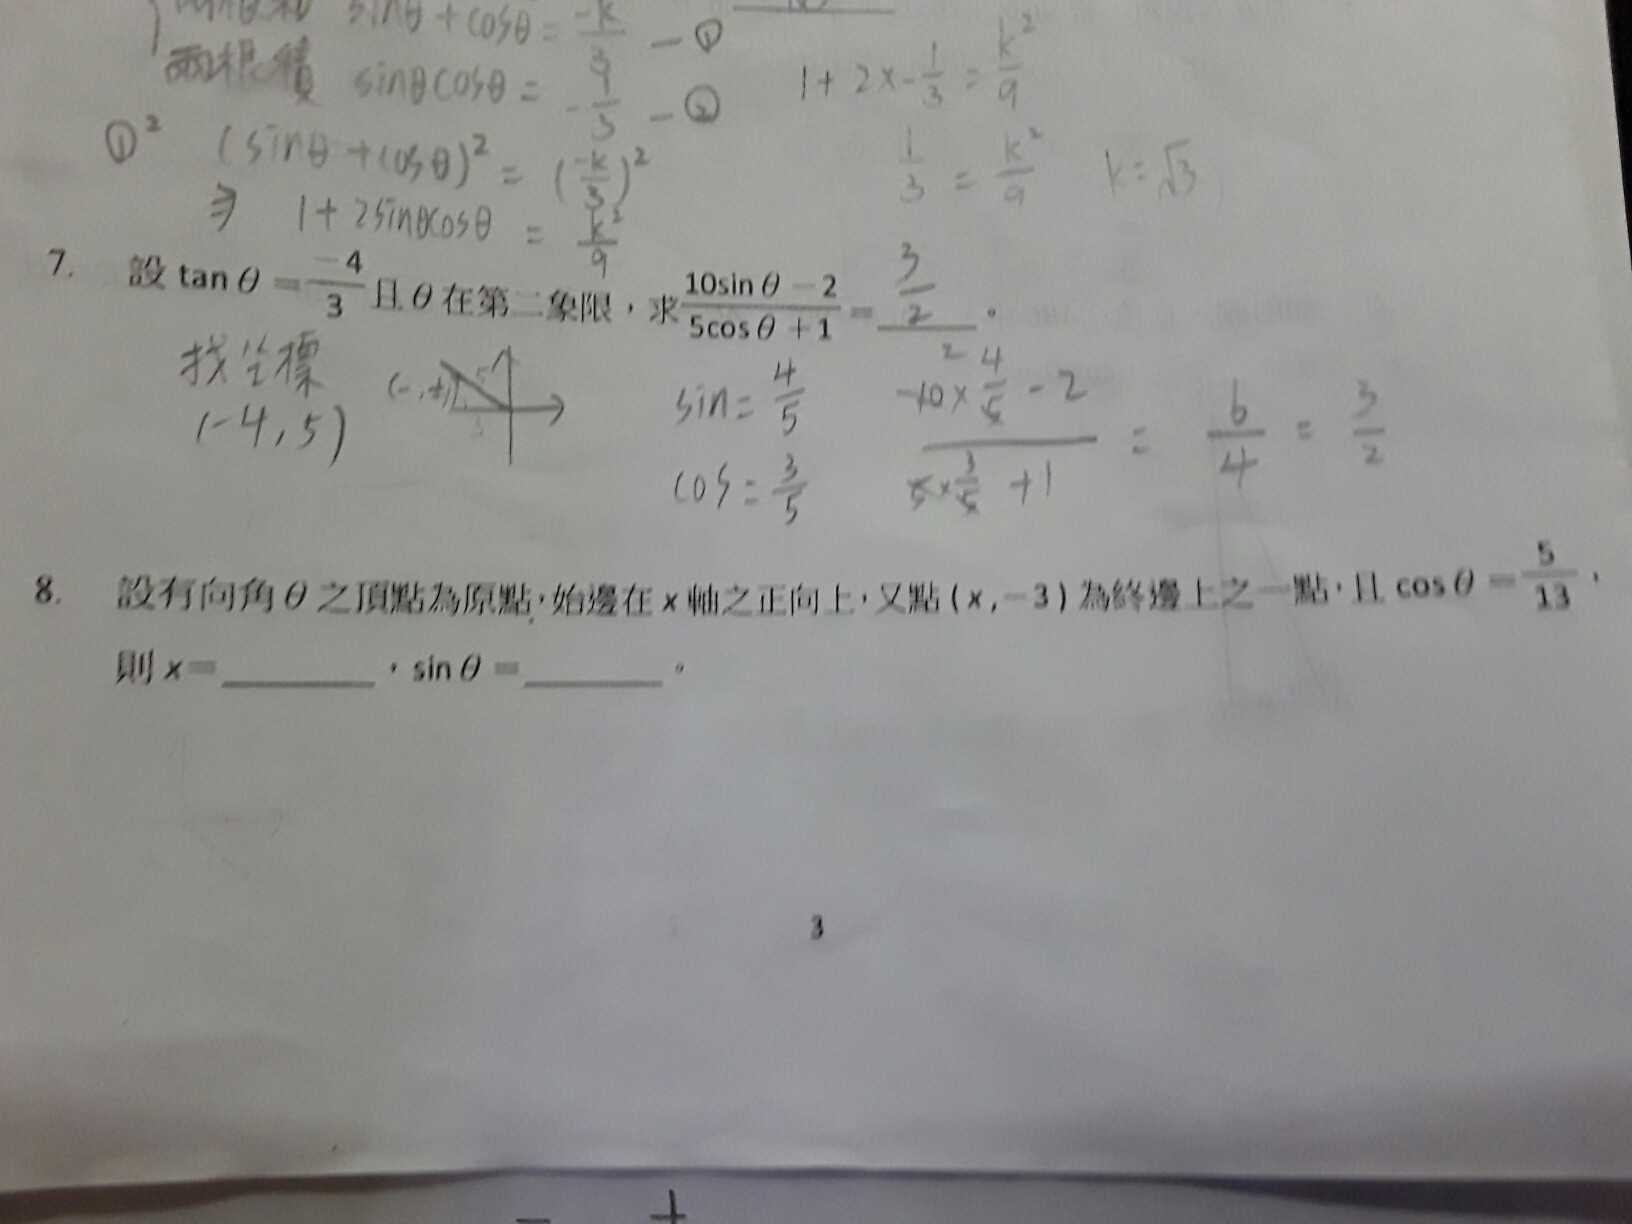 sinθ + cosθ = -k/3 — ①
兩根積 sinθcosθ = - — ②
1 + 2×-1/3 = k²/9
①² (sinθ + cosθ)² = (-k/3)²
1/3 = k²/9 k=√3
⇒ 1 + 2sinθcosθ = k²/9
7. 設 tan θ = -4/3 且 θ 在第二象限，求 (10sin θ - 2)/(5cos θ + 1) = 3/2 。
找坐標
(-4,5)
sin = 4/5
cos = 3/5
(10×4/5 - 2)/(5×3/5 + 1) = 6/4 = 3/2
8. 設有向角 θ 之頂點為原點，始邊在 x 軸之正向上，又點 (x, -3) 為終邊上之一點，且 cos θ = 5/13，
則 x = ________ ，sin θ = ________ 。
3